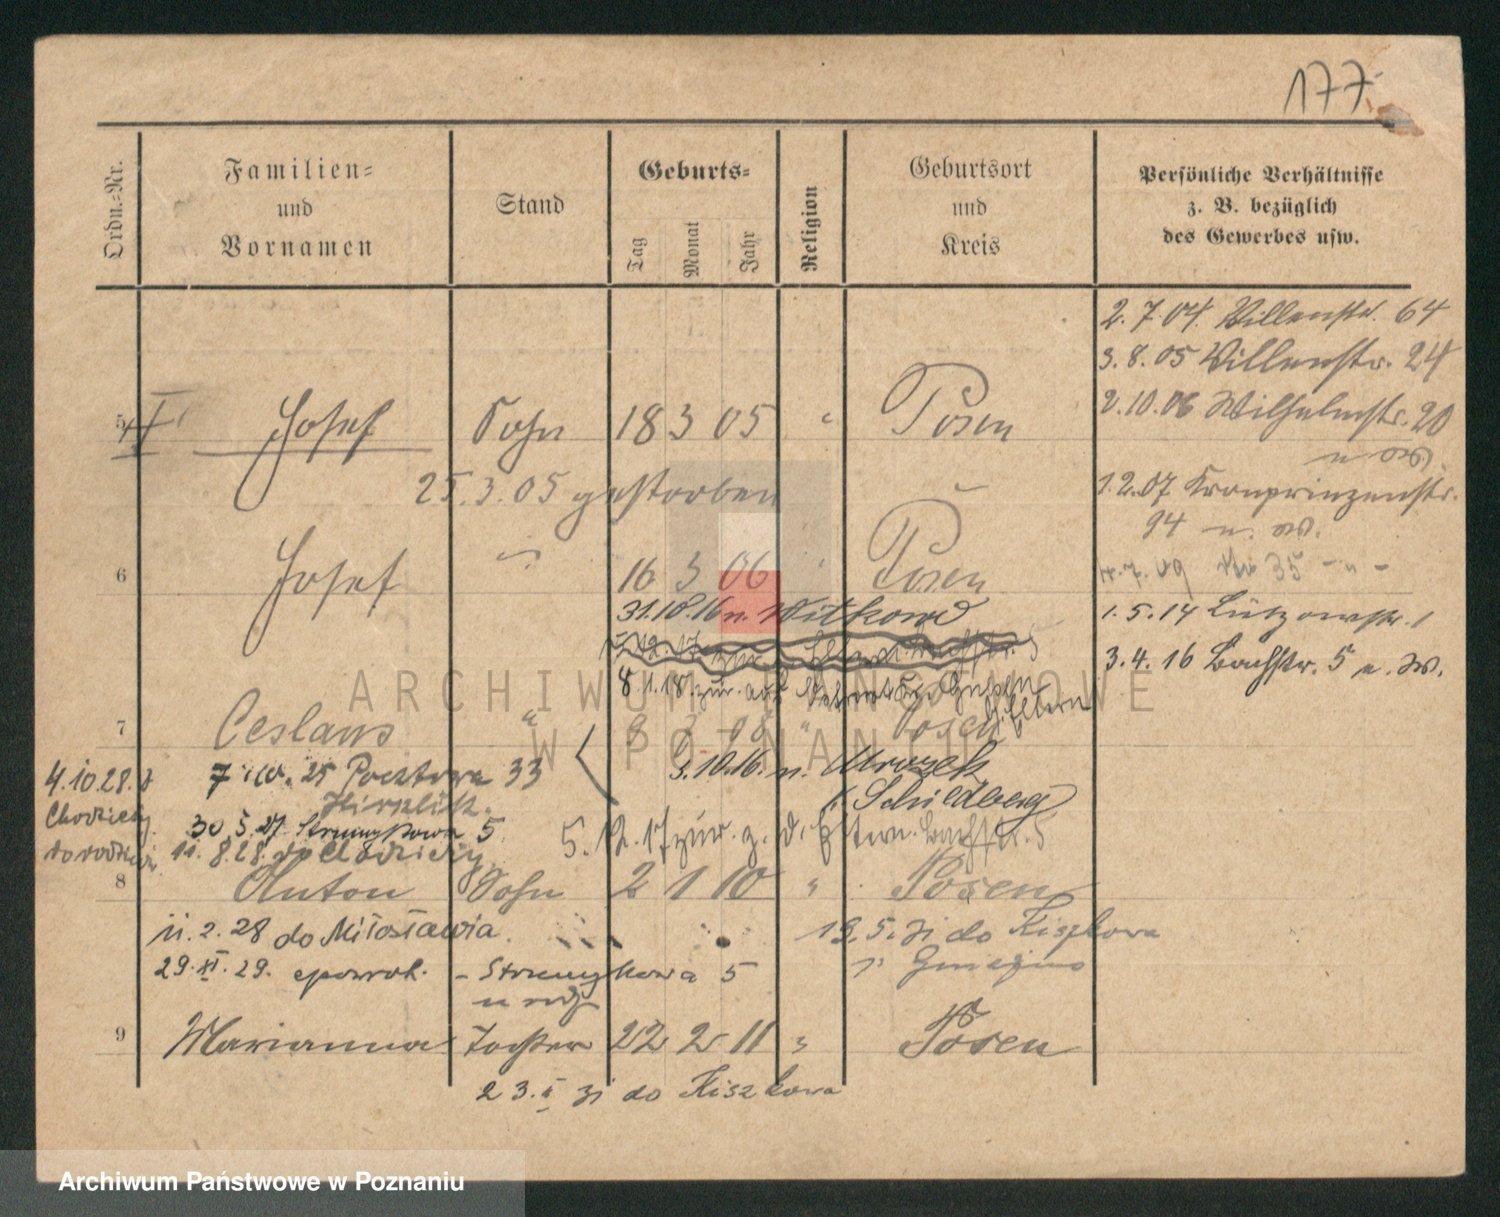 177.
Ordn.-Nr.
Familien-
und
Vornamen
Stand
Geburts-
Tag
Monat
Jahr
Religion
Geburtsort
und
Kreis
Persönliche Verhältnisse
z. B. bezüglich
des Gewerbes usw.
2.7.04. Villenstr. 64
3.8.05 Villenstr. 24
2.10.06 Wilhelmstr. 20
1.2.07 Kronprinzenstr.
94 n. W.
4.7.09 35 – " –
1.5.14 Lützowstr. 1
3.4.16 Bachstr. 5 n. W.
5 Josef Sohn 18 3 05 " Posen
25.3.05 gestorben
6 Josef " 16 3 06 " Posen
31.10.16 n. Witkowo
8.1.18 zur. aus Gnesen
Eltern
7 Ceslaus " 8 3 08 " Posen
3.10.16. n. Mrozek
Schildberg
4.10.28. d
Chodzieży
7 25 Pocztowa 33
30.5.27. Strumykowa 5
11.8.28. do Chodzieży
5.12.17 zur. z. d. Eltern. Bachstr. 5
8 Anton Sohn 2 1 10 " Posen
11.2.28 do Miłosławia.
19.5. do Kiszkowa
29.XI.29. spowrot. – Strumykowa 5
9 Marianna Tochter 22 2 11 " Posen
23. do Kiszkowa
ARCHIWUM PAŃSTWOWE
W POZNANIU
Archiwum Państwowe w Poznaniu